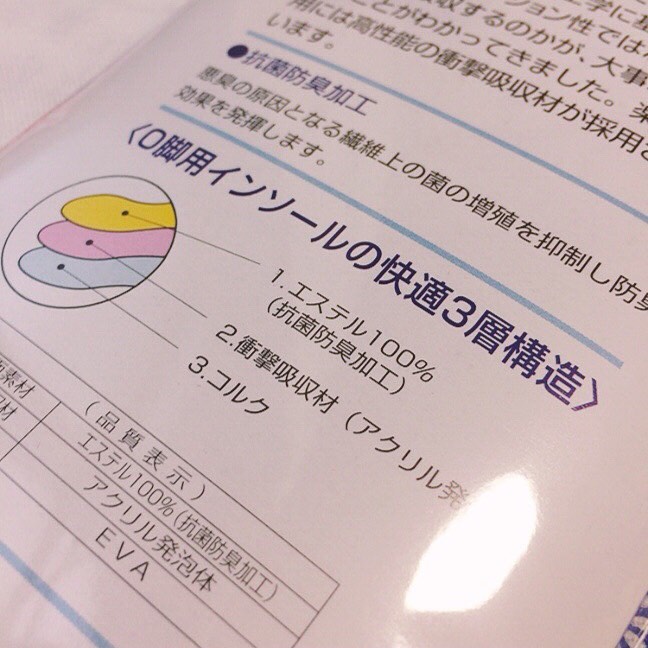 学に基
ション性では
収するのかが、大事
ことがわかってきました。楽
用には高性能の衝撃吸収材が採用さ
います。
●抗菌防臭加工
悪臭の原因となる繊維上の菌の増殖を抑制し防臭
効果を発揮します。
〈O脚用インソールの快適3層構造〉
1.エステル100%
(抗菌防臭加工)
2.衝撃吸収材(アクリル発
3.コルク
(品質表示)
素材 エステル100%(抗菌防臭加工)
材 アクリル発泡体
EVA